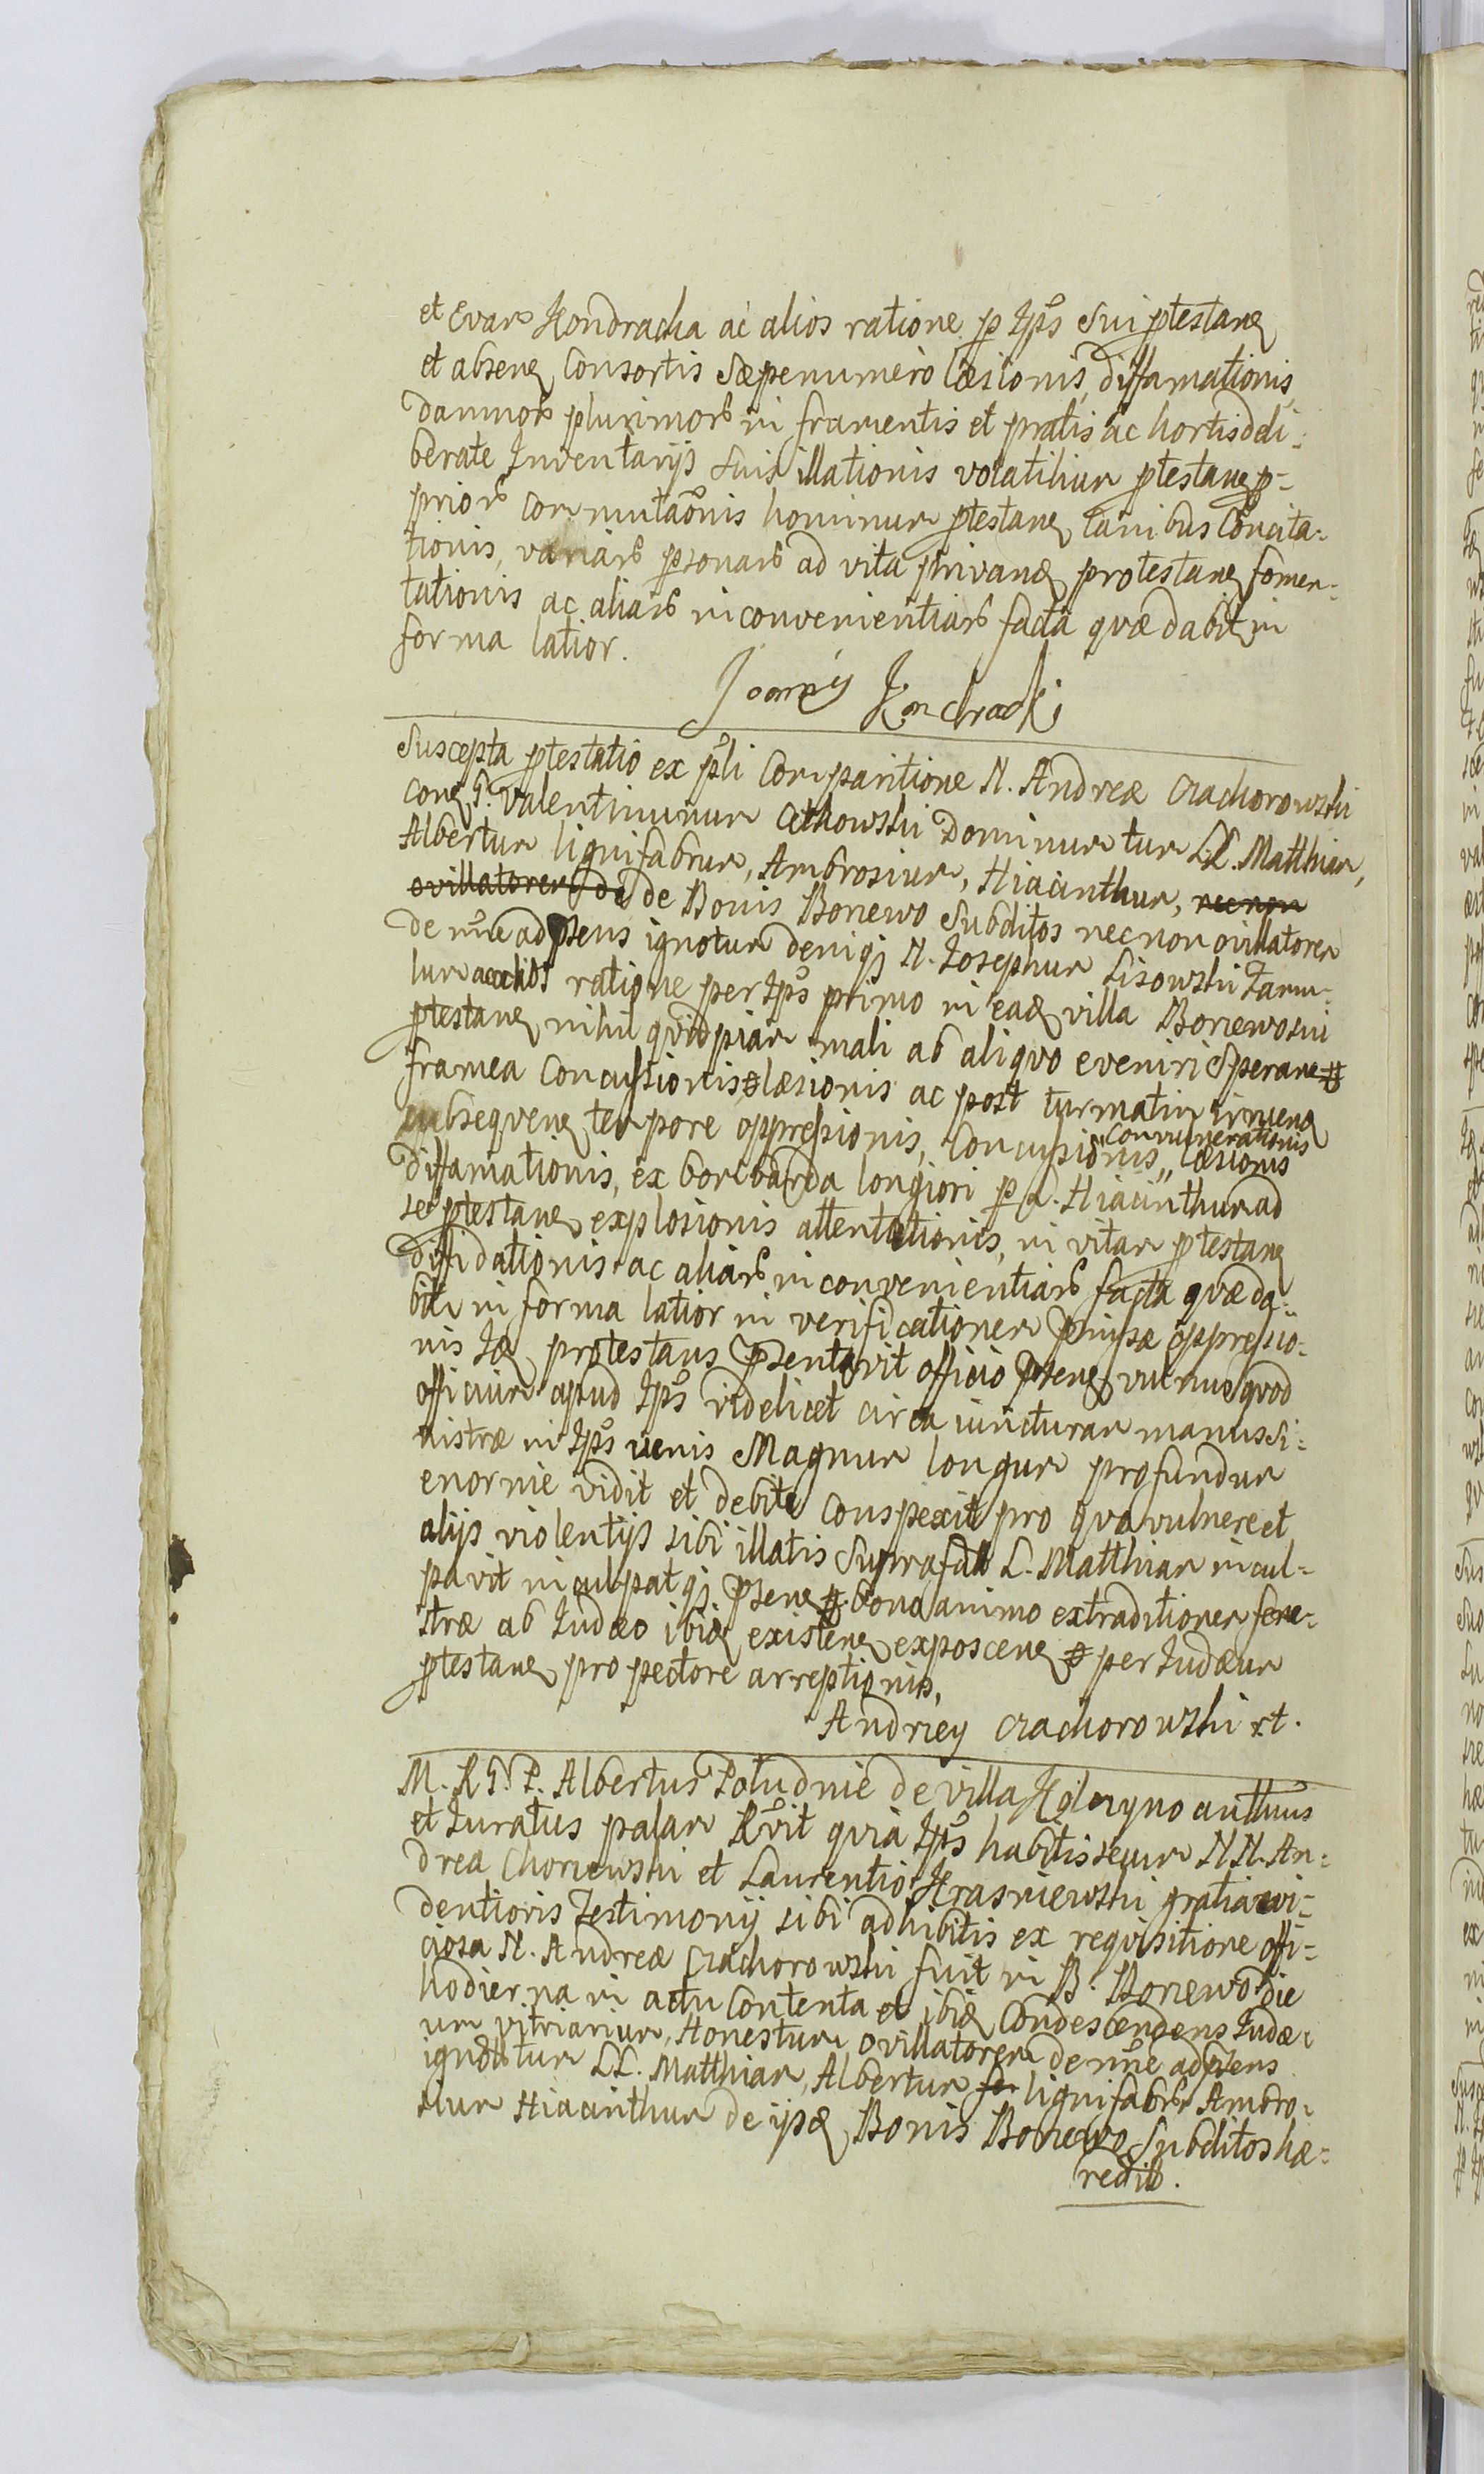 et Evam Kondracka ac alios ratione p Ips Sui ptestang
et abseng Consortis Sæpenumero læsionis, diffamationis,
damnor plurimor in framentis et pratis ac hortis deli-
berate Inventarys suis illationis volatilium ptestang p-
prior Commutaonis hominum ptestang canibus Concita-
tionis, variar psonar ad vita privand protestang fomen-
tationis ac aliar inconvenientiar facta quæ dabit in
forma latior.
Suscepta ptestatio ex psli Comparitione N. Andreæ Czachorowski
cong G. Valentinum Dominum tum LL. Matthiam,
Albertum lignifabrum, Ambrosium, Hiacinthum, nec non
ovillatorem de de Bonis Bonewo Subditos nec non ovillatorem
de nne ad psens ignotum deniqj N. Josephum Lisowski Famu-
lum ratione per Ips primo in ead villa Bonewo sui
ptestang nihil quidpiam mali ab aliquo eveniri Sperang
framea Concussionis læsionis ac post turmatim
subseqveng tempore oppressionis, Concussionis, convulnerationis læsionis
diffamationis, ex bombarda longiori p L. Hiacinthum ad
se ptestang explosionis attentationis, in vitam ptestang
diffidationis ac aliar inconvenientiar facta quæ da-
bit in forma latior in verificationem pmissæ oppressio-
nis Id protestans psentavit officio pseng vulnus quod
officium apud Ips videlicet circa iuncturam manus si-
nistræ in Ips venis Magnum longum profundum
enorme vidit et debite Conspexit pro quo vulnere et
alijs violentijs sibi illatis Suprafatu L. Matthiam incul-
pavit inculpatqj pseng bono animo extraditionem fene-
stræ ab Judæo ibid existeng exposceng per Judæum
ptestang pro pectore arreptionis,
Andrzey Czachorowski
M. R G. P. Albertus Południe de villa authus
et Juratus palam Rvit quia Ips habitis secum NN. An-
drea Choniewski et Laurentio Krasniewski gratia evi-
dentioris Testimonij sibi adhibitis ex requisitione offi-
ciosa N. Andreæ Czachorowski fuit in B. Bonewo die
hodierna in actu Contenta et ibid Condescendens Judæ-
um vitriarium, Honestum ovillatorem de nne ad psens
ignotum LL. Matthiam, Albertum lignifabr Ambro-
sium Hiacinthum de ijsd Bonis Bonewo Subditos hæ-
redit.